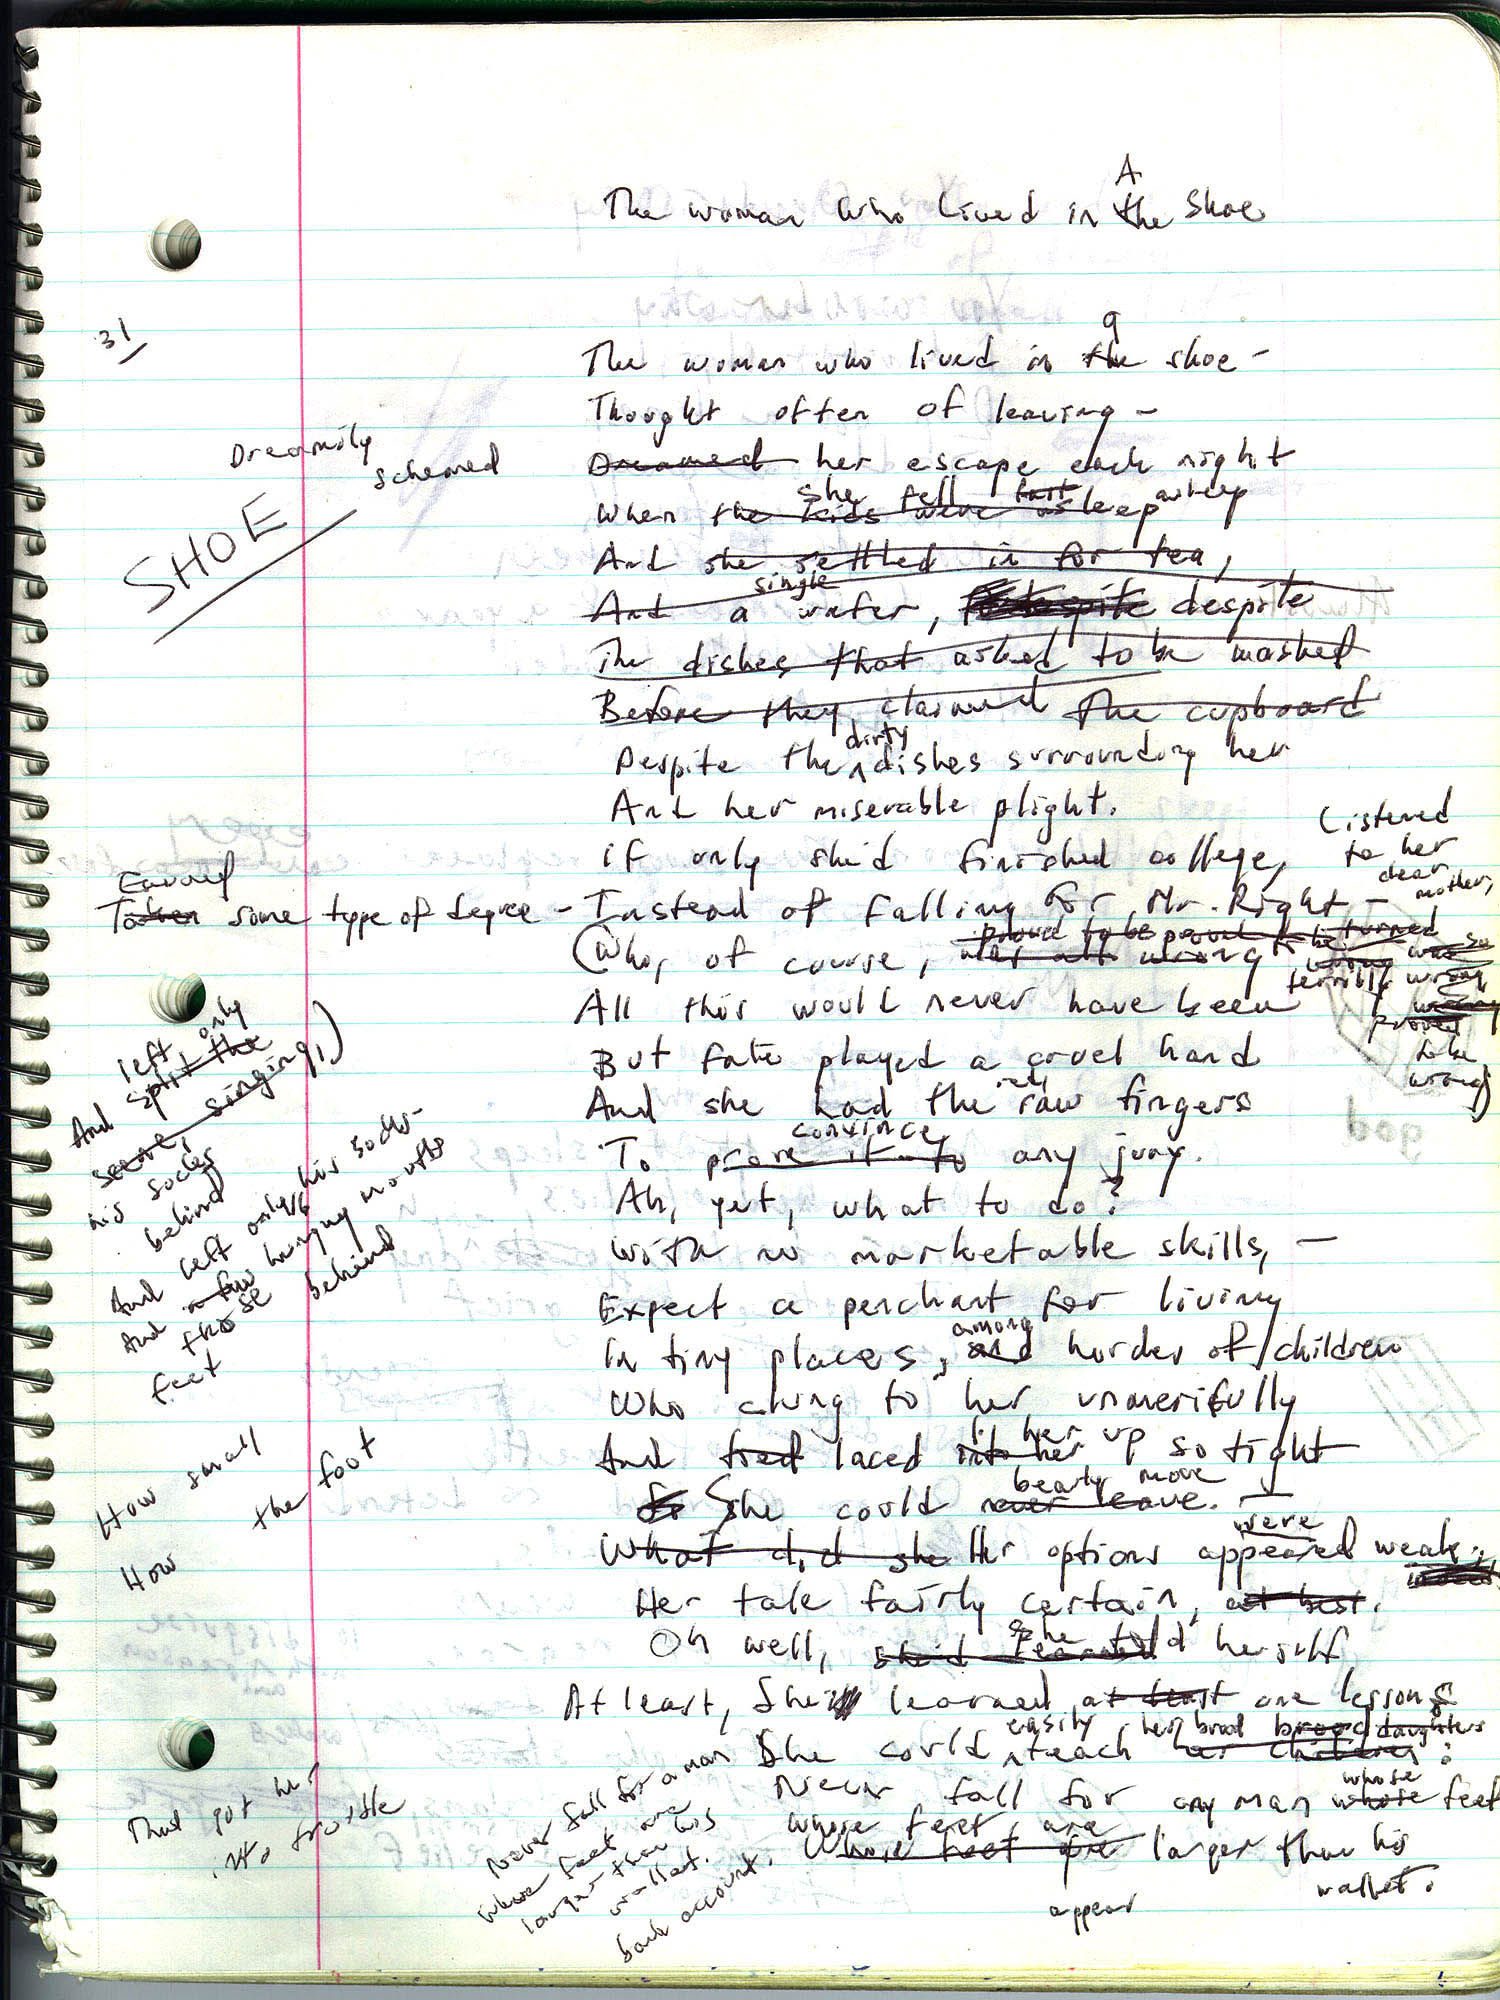 A
The woman who lived in the Shoe
31
a
The woman who lived in the shoe –
Thought often of leaving –
Dreamily schemed
Dreamed her escape each night
she fell fast asleep
When the kids were asleep
SHOE
And she settled in for tea,
single
And a wafer, despite despite
The dishes that asked to be washed
Before they claimed the cupboard
dirty
Despite the dishes surrounding her
And her miserable plight.
If only she'd finished college,
Listened
to her
dear
mother,
Earned
Taken some type of degree – Instead of falling for Mr. Right –
proved to be turned
(Who, of course, was all wrong
terribly wrong
proved
to be
wrong)
All this would never have been
But fate played a cruel hand
red,
And she had the raw fingers
convince
To prove it to any jury.
left only
And split the
scene, singing,)
his socks
behind
And left only his socks –
And a few hungry mouths
those behind
feet
Ah, yet, what to do?
With no marketable skills, –
Expect a penchant for living
among
In tiny places, and hordes of children
Who clung to her unmercifully
her up
And tied laced into her so tight
How small
the foot
How
bearly move
So She could never leave.
were
What did she Her options appeared weak;
Her tale fairly certain, at best.
she told
Oh well, she'd learned herself
At least, She'd learned at least one lesson
easily her brood brood daughters
She could teach her children:
whose
Never fall for any man whose feet
where feet are
Whose feet are larger than his
wallet.
appear
That got her
into trouble
Never fall for a man
whose feet are
larger than his
wallet.
bank account.